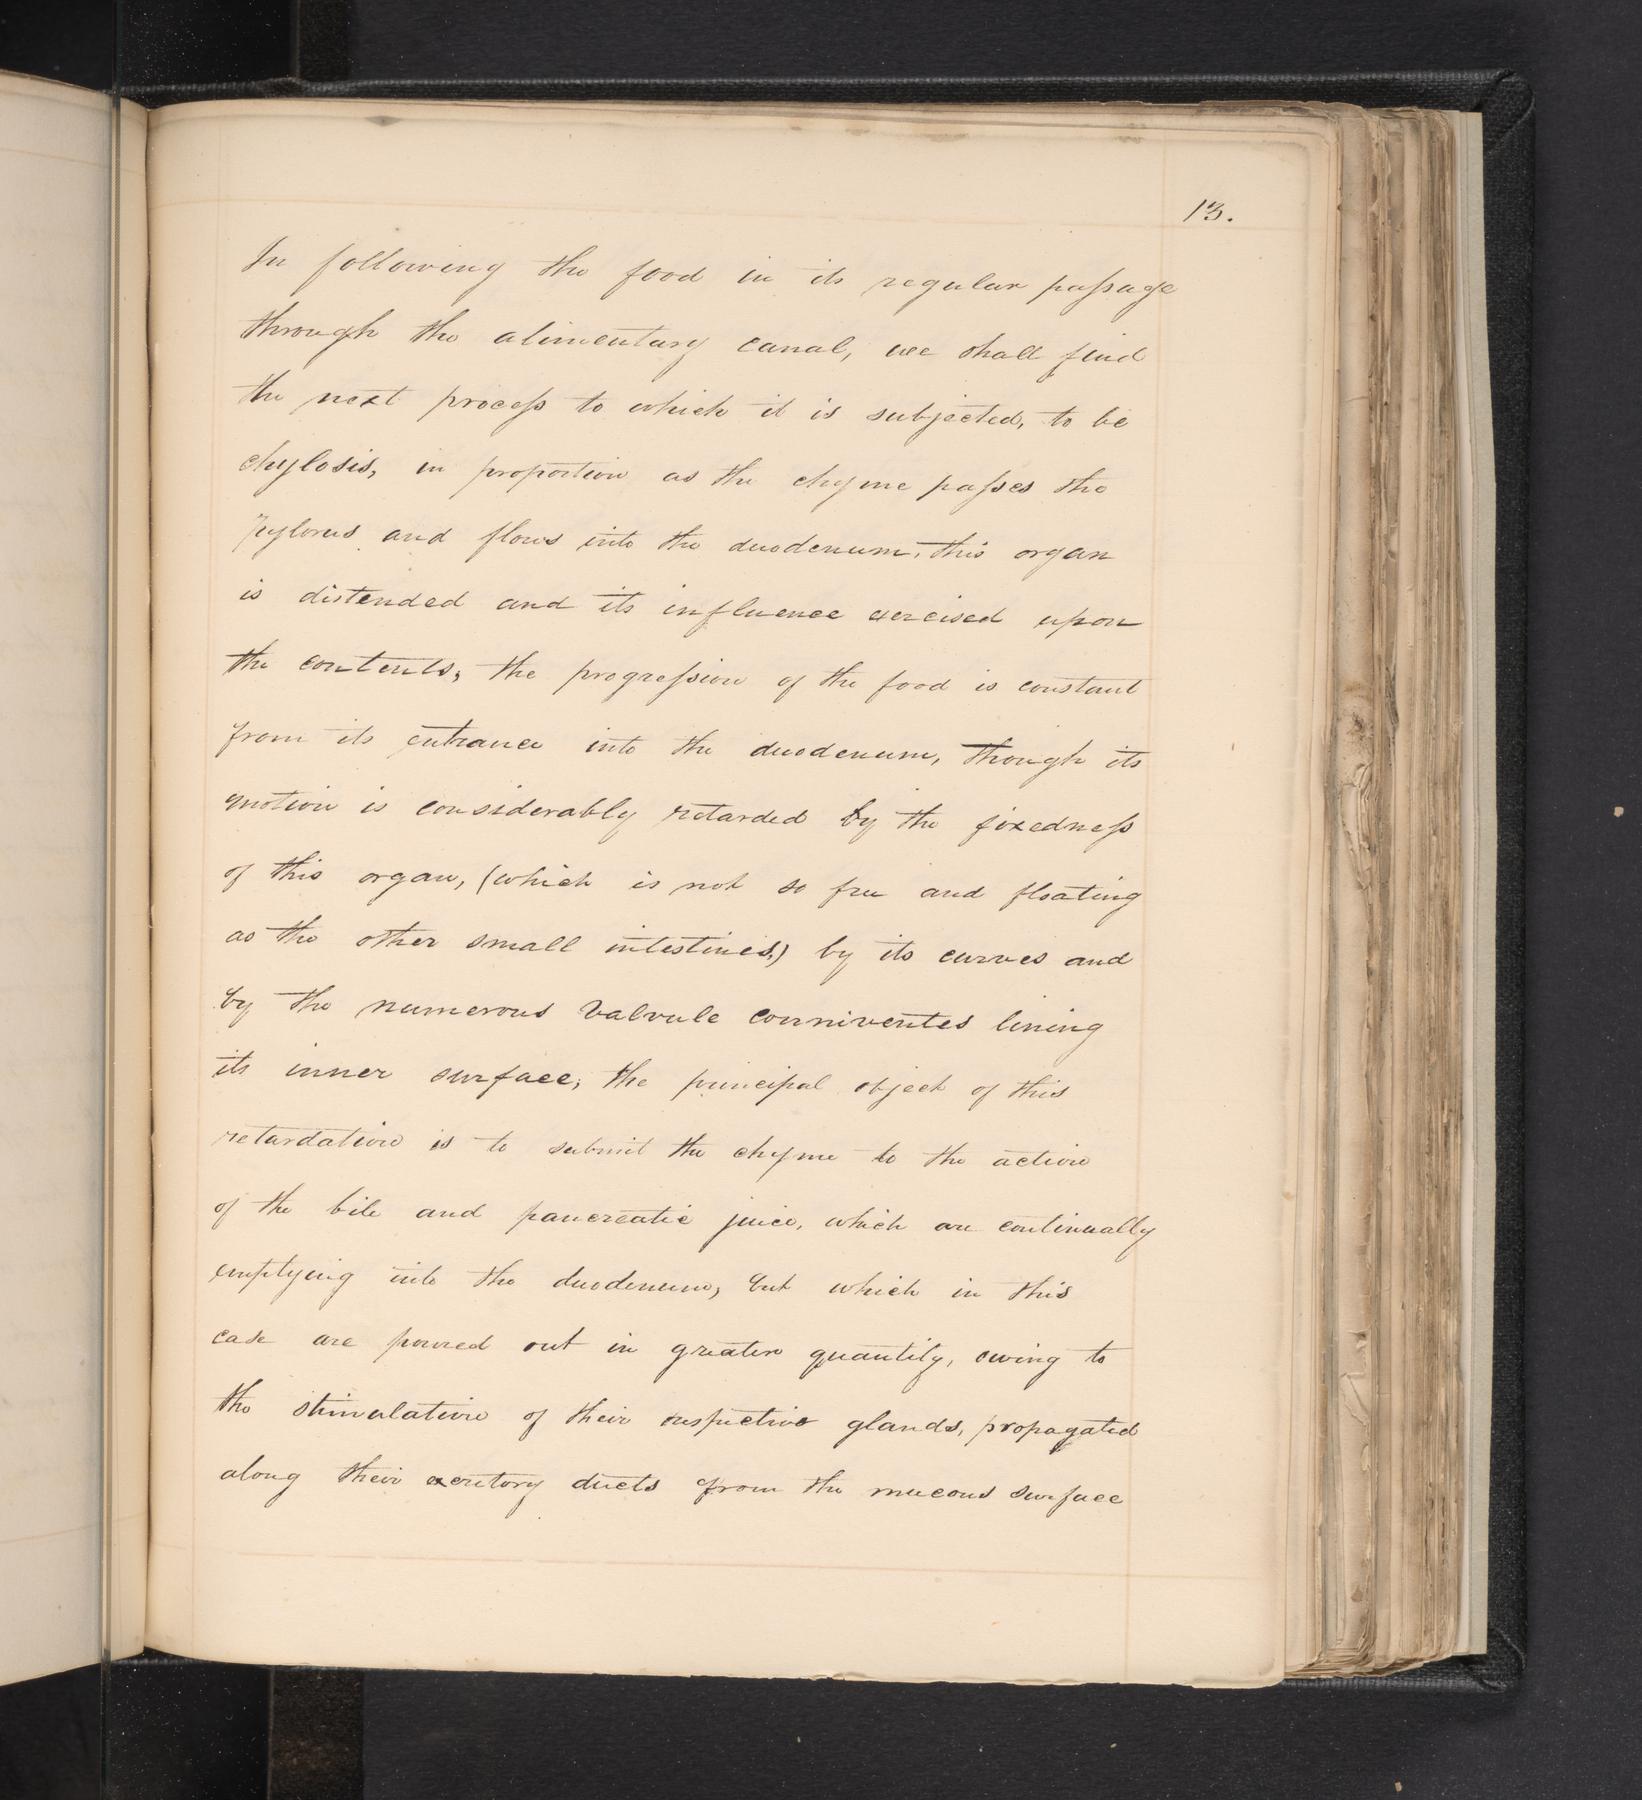 13.
In following the food in its regular paſsage
through the alimentary canal, we shall find
the next proceſs to which it is subjected, to be
chylosis, in proportion as the chyme paſses the
Pylorus and flows into the duodenum, this organ
is distended and its influence exercised upon
the contents, the progreſsion of the food is constant
from its entrance into the duodenum, though its
motion is considerably retarded by the fixedneſs
of this organ, (which is not so free and floating
as the other small intestines,) by its curves and
by the numerous Valvule conniventes lining
its inner surface; the principal object of this
retardation is to submit the chyme to the action
of the bile and pancreatic juice, which are continually
emptying into the duodenum, but which in this
case are poured out in greater quantity, owing to
the stimulation of their respective glands, propagated
along their excretory ducts from the mucous surface